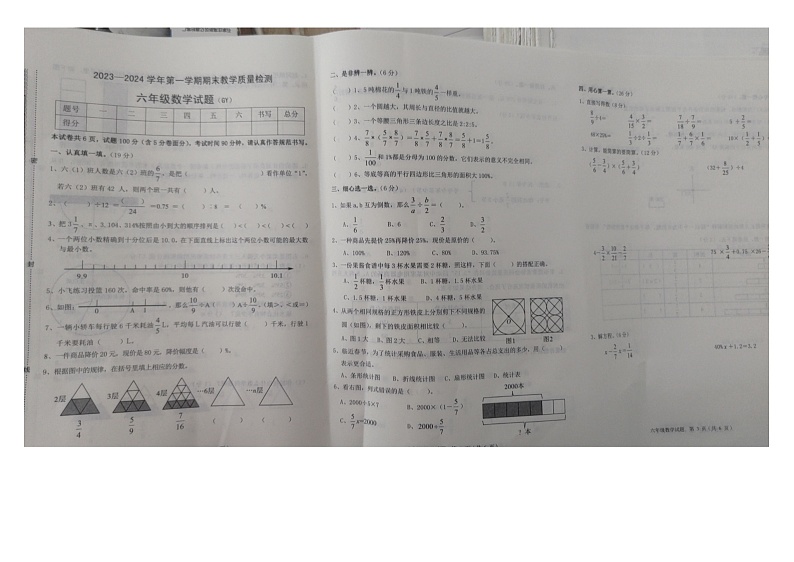 2023—2024 学年第一学期期末教学质量检测
六年级数学试题(GY)
题号 一 二 三 四 五 六 书写 总分
得分
本试卷共 6 页,试题 100 分(含 5 分卷面分)。考试时间 90 分钟,请认真作答规范书写。
一、认真填一填。(19 分)
1、六(1)班人数是六(2)班的6/7,是把( )看作单位“1”。
若六(2)班有 42 人,则两个班一共有( )人。
2、( )÷12 = ( )/24 =0.75 =( ):8 =( )%
3、把 3 1/7、π、3.104、314%按照由小到大的顺序排列是( )<( )<( )<( )
4、一个两位小数精确到十分位后是 10.0,在下面直线上标出这个两位小数可能的最大数
与最小数。
9.9 10 10.1
5、小飞练习投篮 160 次,命中率是 60%,则他有( )次没命中。
6、如图: 0 A 1 ,那么10/9÷A( )A÷10/9。(填>、<或=)
7、一辆小轿车每行驶 6 千米耗油4/5 L,平均每 L 汽油可以行驶( )千米,行驶 1
千米要耗油( )L。
8、一件商品降价 20 元,现价是 80 元,降价幅度是( )%。
9、根据图中的规律,在括号里填上相应的分数。
2层 3层 4层 …6层 …n层
3/4 5/9 7/16 ( ) ( )
二、是非辨一辨。(6 分)
( )1、5 吨棉花的1/4与 1 吨铁的4/5一样重。
( )2、一个圆越大,其周长与直径的比值就越大。
( )3、一个等腰三角形三条边长度之比是 2:2:5。
( )4、7/8×(5/8×8/7)=7/8×5/8+7/8×8/7=5/8+1=1 5/8。
( )5、1/100和 1%都是分母为 100 的分数,它们表示的意义不完全相同。
( )6、等底等高的平行四边形比三角形的面积大 100%。
三、细心选一选。(6 分)
1、如果 a,b 互为倒数,那么3/a÷b/2=( )。
A、1/6 B、6 C、2/3 D、3/2
2、一种商品先提价 25%再降价 25%,现价是原价的( )。
A、100% B、120% C、80% D、93.75%
3、一份果酱食谱中每 3 杯水果需要 2 杯糖,照这样,下面( )的搭配正确。
A、1/2杯糖,3杯水果 B、1 杯糖,1.5杯水果
C、1.5杯糖,1 杯水果 D、4 杯糖,5杯水果
4、从两个相同规格的正方形铁皮上分别剪下不同规格的
圆(如图),剩下的铁皮面积相比较( )。
A、图 1 大 B、图 2 大 C、相等 D、无法比较
图1 图2
5、临近春节,为了统计采购食品、服装、生活用品等各占总支出的多少,用( )
表示更合适。
A、条形统计图 B、折线统计图 C、扇形统计图 D、统计表
6、看右图,列式错误的是( )。
A、2000÷5×7 B、2000×(1-5/7)
C、5/7x=2000 D、2000÷5/7
2000本
? 本
四、用心算一算。(26 分)
1、直接写得数(8分)
2、计算,能简算的要简算。(12 分)
3、解方程。(6 分)
60%x+1.2=3.2
六年级数学试题 第 1 页(共 6 页)
密
封
线